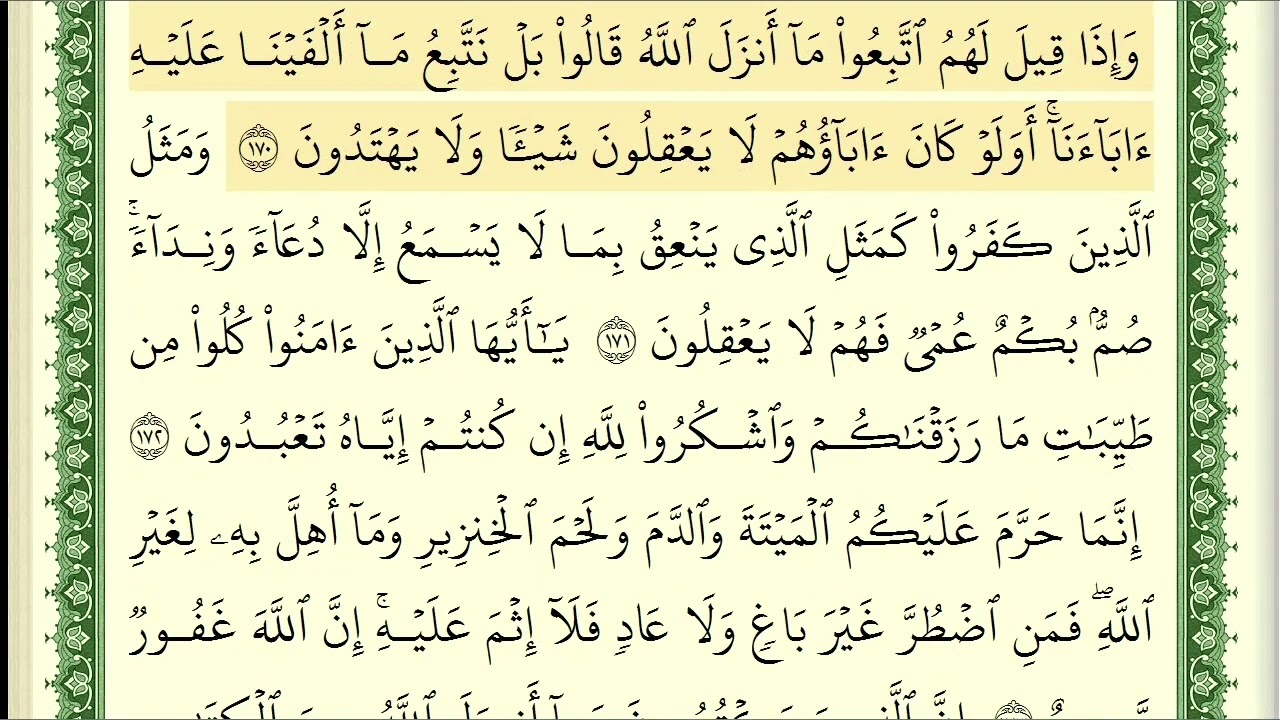 وَإِذَا قِيلَ لَهُمُ ٱتَّبِعُوا۟ مَآ أَنزَلَ ٱللَّهُ قَالُوا۟ بَلْ نَتَّبِعُ مَآ أَلْفَيْنَا عَلَيْهِ
ءَابَآءَنَآ ۚ أَوَلَوْ كَانَ ءَابَآؤُهُمْ لَا يَعْقِلُونَ شَيْـًٔا وَلَا يَهْتَدُونَ ١٧٠ وَمَثَلُ
ٱلَّذِينَ كَفَرُوا۟ كَمَثَلِ ٱلَّذِى يَنْعِقُ بِمَا لَا يَسْمَعُ إِلَّا دُعَآءً وَنِدَآءً ۚ
صُمٌّۢ بُكْمٌ عُمْىٌ فَهُمْ لَا يَعْقِلُونَ ١٧١ يَـٰٓأَيُّهَا ٱلَّذِينَ ءَامَنُوا۟ كُلُوا۟ مِن
طَيِّبَـٰتِ مَا رَزَقْنَـٰكُمْ وَٱشْكُرُوا۟ لِلَّهِ إِن كُنتُمْ إِيَّاهُ تَعْبُدُونَ ١٧٢
إِنَّمَا حَرَّمَ عَلَيْكُمُ ٱلْمَيْتَةَ وَٱلدَّمَ وَلَحْمَ ٱلْخِنزِيرِ وَمَآ أُهِلَّ بِهِۦ لِغَيْرِ
ٱللَّهِ ۖ فَمَنِ ٱضْطُرَّ غَيْرَ بَاغٍ وَلَا عَادٍ فَلَآ إِثْمَ عَلَيْهِ ۚ إِنَّ ٱللَّهَ غَفُورٌ